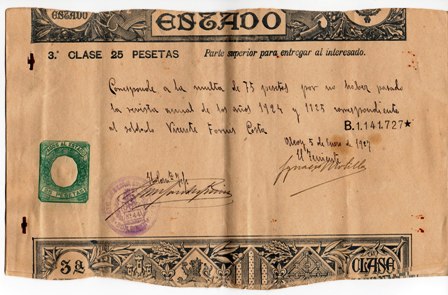 ESTADO ESTADO
3.ª CLASE 25 PESETAS Parte superior para entregar al interesado.
Corresponde a la multa de 75 pesetas por no haber pasado
la revista anual de los años 1924 y 1925 correspondiente
al soldado Vicente Costa
B.1.141.727★
Alcoy 5 de Enero de 1927
El Teniente
PESETAS
3.ª CLASE